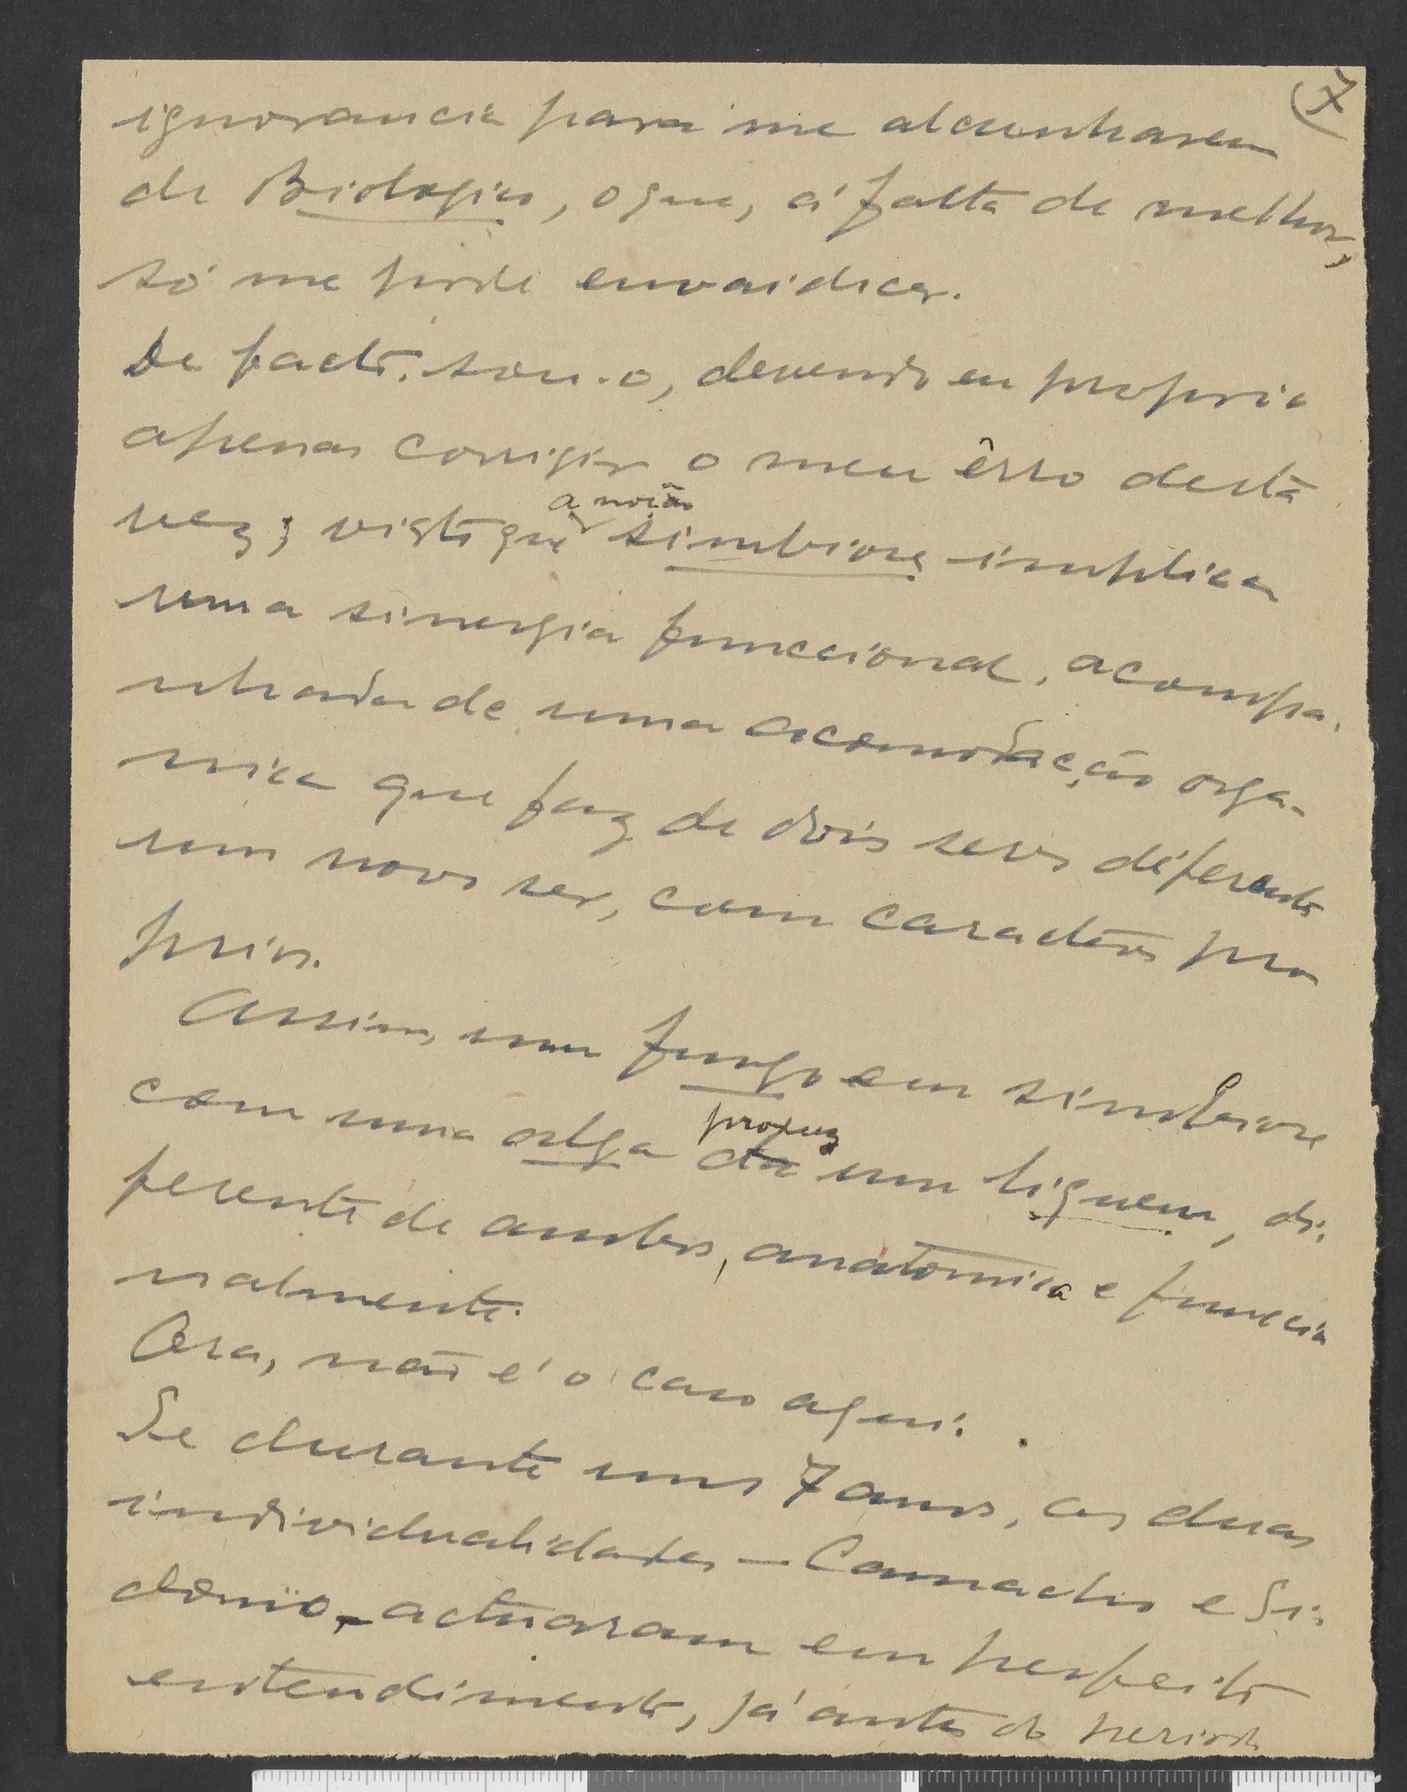 7
ignorancia para me alcunharem
de Biologico, o que, á falta de melhor,
só me pode envaidecer.
De facto, sou-o, devendo eu proprio
apenas corrigir o meu êrro desta
vez; visto que a noção simbiose implica
uma sinergia funccional, acompa-
nhada de uma acomodação orga-
nica que faz de dois seres diferentes
um novo ser, com caracteres pro
prios.
Assim, um fungo em simbiose
com uma alga produz um liquem, di-
ferente de ambos, anatomica e funccio
nalmente.
Ora, não é o caso aqui.
Se durante uns 7 anos, as duas
individualidades — Camacho e Si-
donio - actuaram em perfeito
entendimento, já antes do periodo